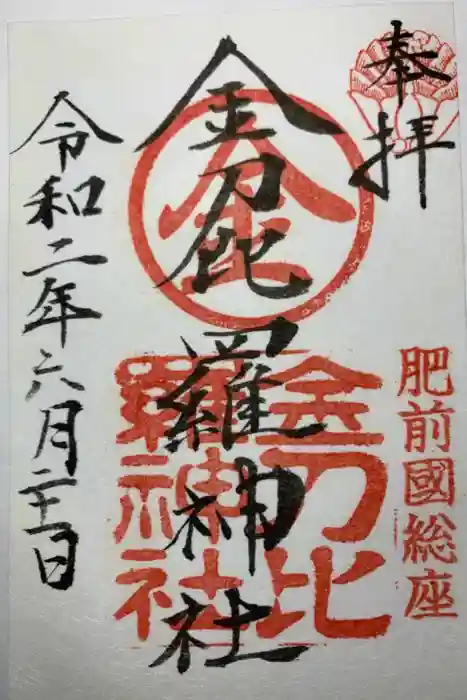 奉拝
肥前國総座
金刀比羅神社
金
金刀比羅神社
令和二年六月二十一日